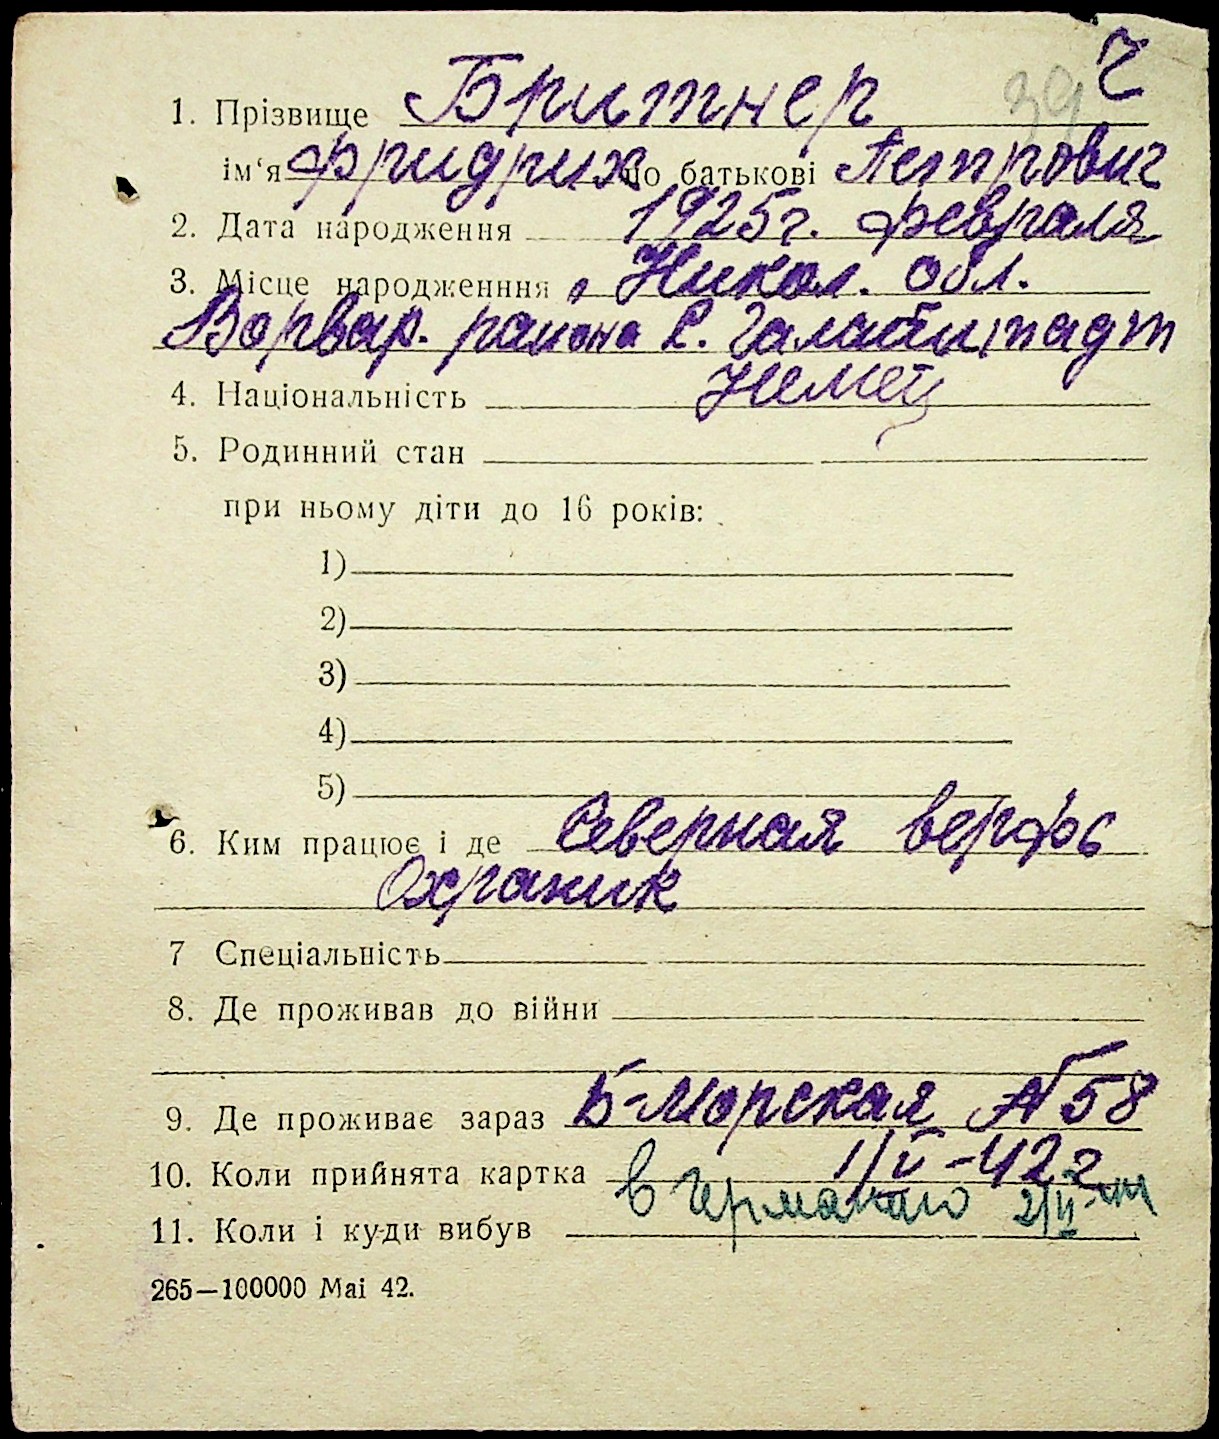 Ч
39
1. Прізвище Бритнер
ім'я Фридрих по батькові Петрович
2. Дата народження 1925 г. февраля
3. Місце народженння Никол. обл.
Варвар. района с.
4. Національність Немец
5. Родинний стан
при ньому діти до 16 років:
1)
2)
3)
4)
5)
6. Ким працює і де Северная верфь
Охраник
7 Спеціальність
8. Де проживав до війни
9. Де проживає зараз Б-Морская № 58
10. Коли прийнята картка 1/V-42 г
11. Коли і куди вибув в Германию 2/II-44
265—100000 Mai 42.